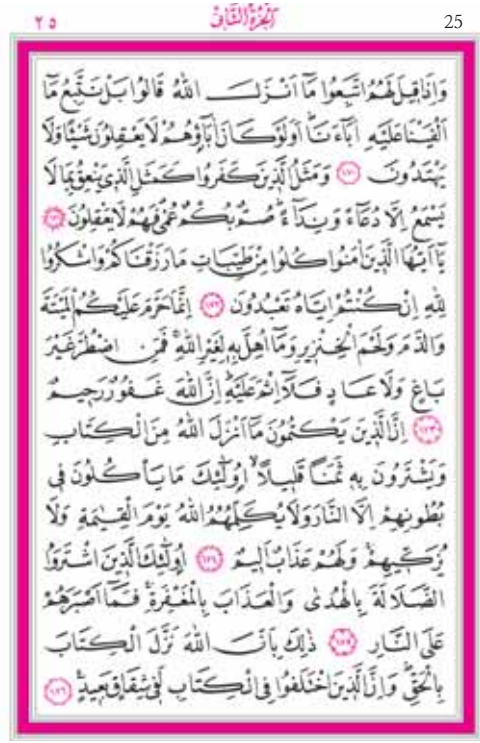 ٢٥ اَلْجُزْءُ الثَّانِى 25
وَاِذَا قٖيلَ لَهُمُ اتَّبِعُوا مَٓا اَنْزَلَ اللّٰهُ قَالُوا بَلْ نَتَّبِعُ مَٓا
اَلْفَيْنَا عَلَيْهِ اٰبَٓاءَنَاۜ اَوَلَوْ كَانَ اٰبَٓاؤُ۬هُمْ لَا يَعْقِلُونَ شَيْـًٔا وَلَا
يَهْتَدُونَ ﴿١٧٠﴾ وَمَثَلُ الَّذٖينَ كَفَرُوا كَمَثَلِ الَّذٖى يَنْعِقُ بِمَا لَا
يَسْمَعُ اِلَّا دُعَٓاءً وَنِدَٓاءًۜ صُمٌّ بُكْمٌ عُمْىٌ فَهُمْ لَا يَعْقِلُونَ ﴿١٧١﴾
يَٓا اَيُّهَا الَّذٖينَ اٰمَنُوا كُلُوا مِنْ طَيِّبَاتِ مَا رَزَقْنَاكُمْ وَاشْكُرُوا
لِلّٰهِ اِنْ كُنْتُمْ اِيَّاهُ تَعْبُدُونَ ﴿١٧٢﴾ اِنَّمَا حَرَّمَ عَلَيْكُمُ الْمَيْتَةَ
وَالدَّمَ وَلَحْمَ الْخِنْزٖيرِ وَمَٓا اُهِلَّ بِهٖ لِغَيْرِ اللّٰهِۚ فَمَنِ اضْطُرَّ غَيْرَ
بَاغٍ وَلَا عَادٍ فَلَٓا اِثْمَ عَلَيْهِۜ اِنَّ اللّٰهَ غَفُورٌ رَحٖيمٌ
﴿١٧٣﴾ اِنَّ الَّذٖينَ يَكْتُمُونَ مَٓا اَنْزَلَ اللّٰهُ مِنَ الْكِتَابِ
وَيَشْتَرُونَ بِهٖ ثَمَنًا قَلٖيلًاۙ اُو۬لٰٓئِكَ مَا يَأْكُلُونَ فٖى
بُطُونِهِمْ اِلَّا النَّارَ وَلَا يُكَلِّمُهُمُ اللّٰهُ يَوْمَ الْقِيٰمَةِ وَلَا
يُزَكّٖيهِمْۚ وَلَهُمْ عَذَابٌ اَلٖيمٌ ﴿١٧٤﴾ اُو۬لٰٓئِكَ الَّذٖينَ اشْتَرَوُا
الضَّلَالَةَ بِالْهُدٰى وَالْعَذَابَ بِالْمَغْفِرَةِۚ فَمَٓا اَصْبَرَهُمْ
عَلَى النَّارِ ﴿١٧٥﴾ ذٰلِكَ بِاَنَّ اللّٰهَ نَزَّلَ الْكِتَابَ
بِالْحَقِّۜ وَاِنَّ الَّذٖينَ اخْتَلَفُوا فِى الْكِتَابِ لَفٖى شِقَاقٍ بَعٖيدٍ ﴿١٧٦﴾